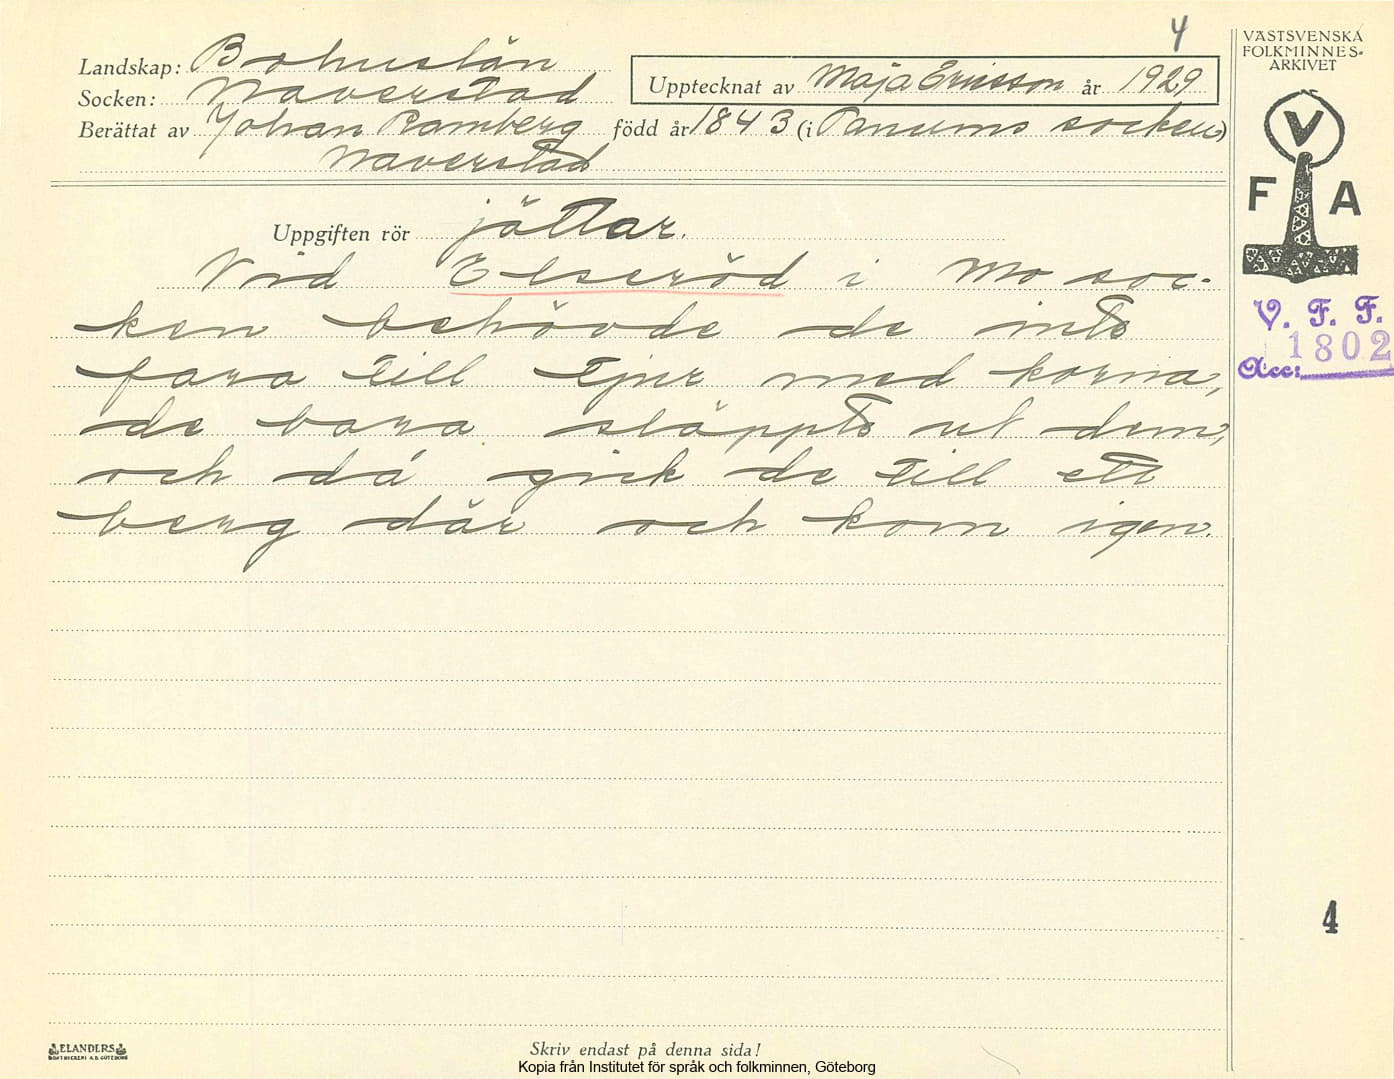 4
VÄSTSVENSKA
FOLKMINNES-
ARKIVET
Landskap: Bohuslän
Socken: Naverstad
Upptecknat av Maja Ericsson år 1929
Berättat av Johan Ramberg född år 1843 (i Tanums socken)
Naverstad
V
F A
Uppgiften rör jättar.
Vid Elseröd i Mo soc-
ken behövde de inte
fara till tjur med korna,
de bara släppte ut dem,
och då gick de till ett
berg där och kom igen.
V. F. F.
Acc: 1802
4
ELANDERS
BOKTRYCKERI A.B. GÖTEBORG
Skriv endast på denna sida!
Kopia från Institutet för språk och folkminnen, Göteborg